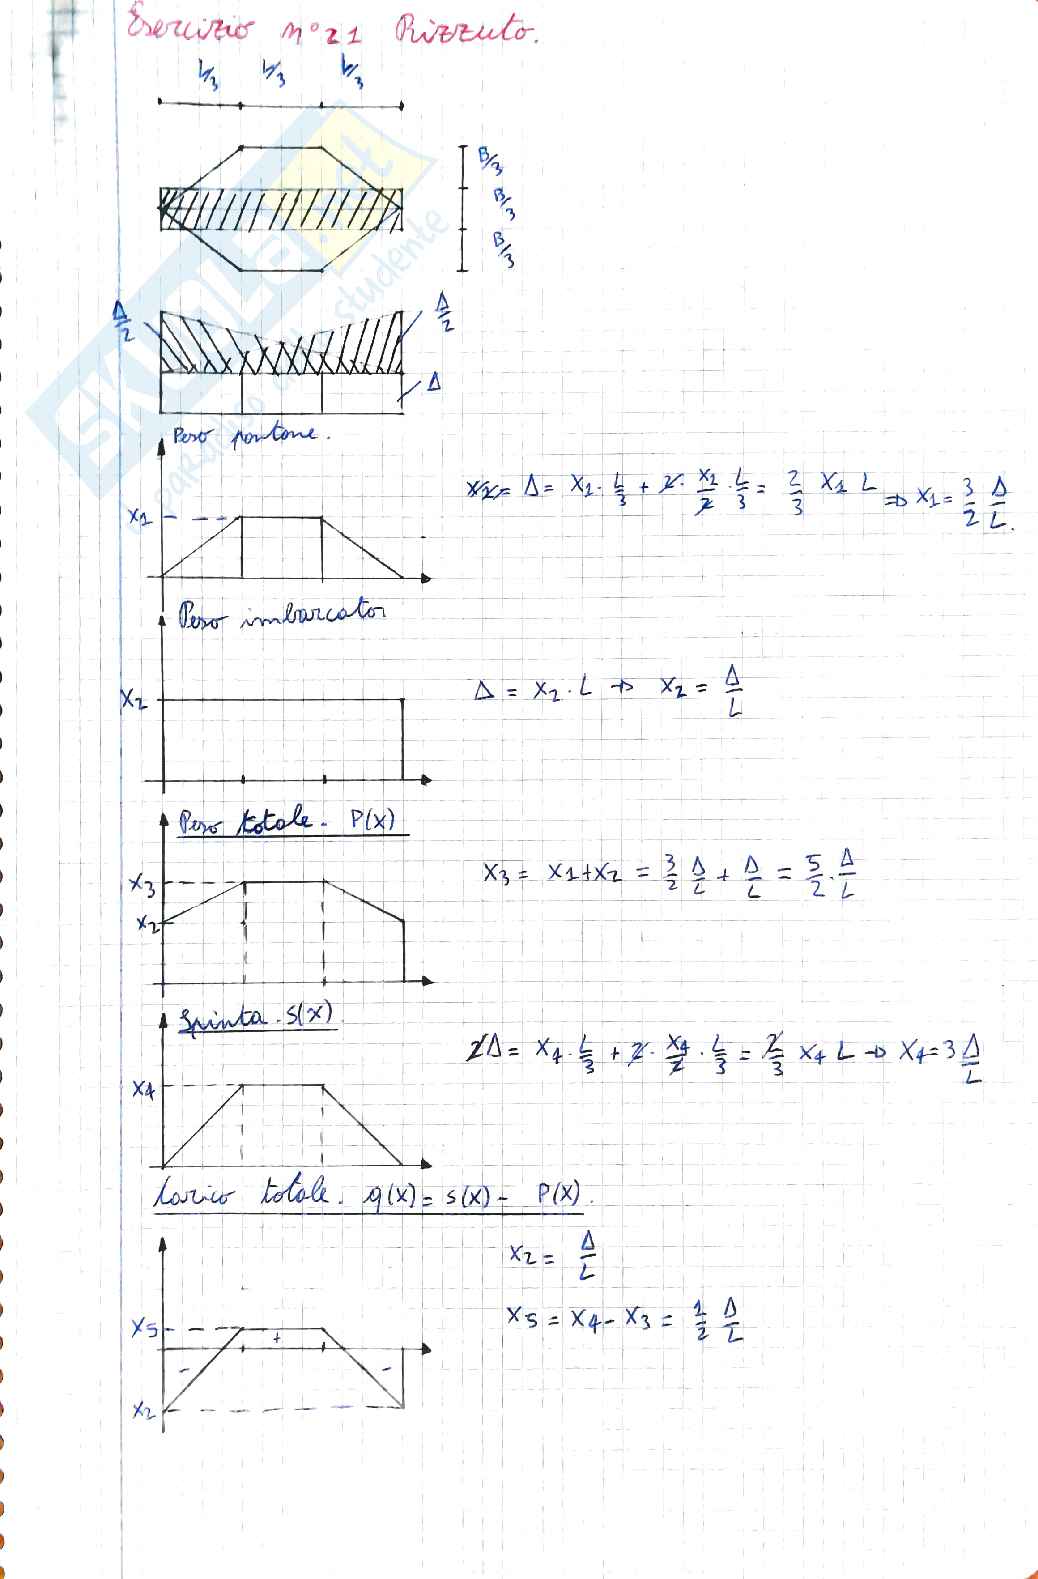 Esercizio n°21 Rizzuto.
L/3 L/3 L/3
B/3
B/3
B/3
Δ/2 Δ/2
Δ
SKUOLA.it
paradiso dello studente
Peso pontone.
X1
Δ = X1 · L/3 + 2 · X1/2 · L/3 = 2/3 X1 L ⇒ X1 = 3/2 Δ/L.
Peso imbarcator
X2
Δ = X2 · L → X2 = Δ/L
Peso totale. P(X)
X3
X2
X3 = X1+X2 = 3/2 Δ/L + Δ/L = 5/2 · Δ/L
Spinta. S(X)
X4
2Δ = X4 · L/3 + 2 · X4/2 · L/3 = 2/3 X4 L → X4 = 3 Δ/L
Carico totale. q(x) = s(x) - P(X).
X2 = Δ/L
X5
+
- -
X5 = X4 - X3 = 1/2 Δ/L
X2